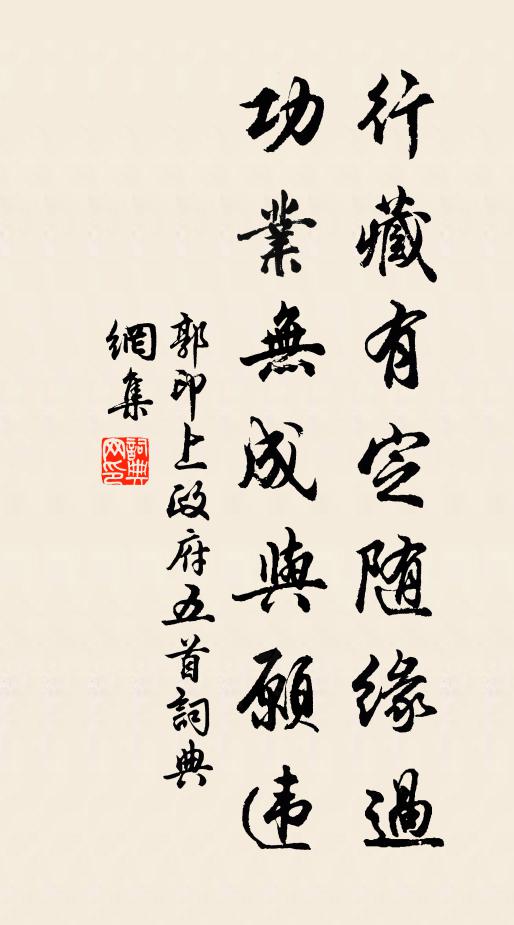 行藏有定随缘過
功業無成與願违
郭印上政府五首詞典
網集
詞典網印